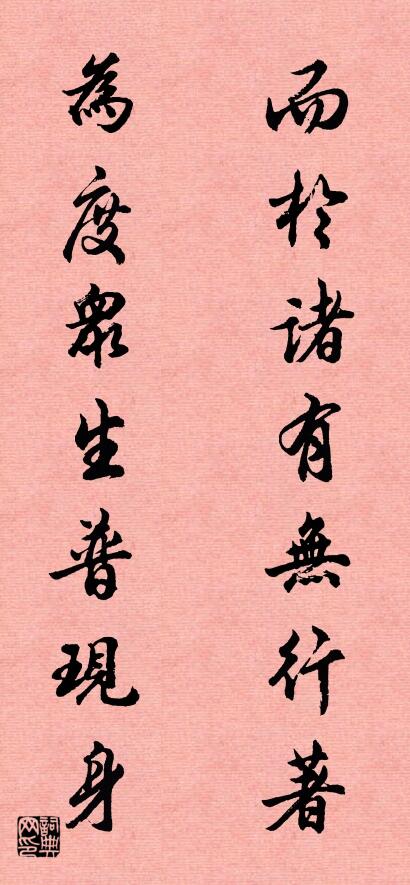 而於諸有無行著
為度眾生普現身
詞典
网印